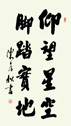 仰望星空
脚踏實地